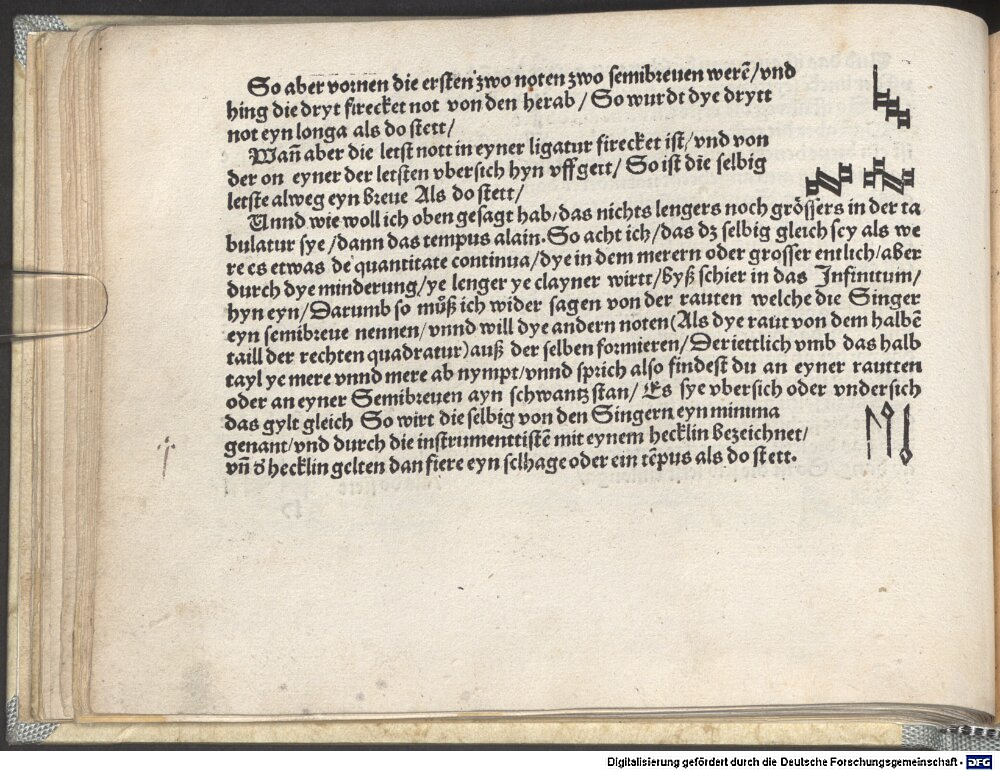 So aber vornen die ersten zwo noten zwo semibreuen werē/vnd
hing die dryt firecket not von den herab/ So wurdt dye drytt
not eyn longa als do stett/
Wañ aber die letst nott in eyner ligatur firecket ist/vnd von
der on eyner der letsten vbersich hyn vffgett/ So ist die selbig
letste alweg eyn breue Als do stett/
Unnd wie woll ich oben gesagt hab/das nichts lengers noch grössers in der ta
bulatur sye/dann das tempus alain. So acht ich/das dz selbig gleich sey als we
re es etwas de quantitate continua/dye in dem merern oder grosser entlich/aber
durch dye minderung/ye lenger ye clayner wirtt/byß schier in das Infinitum/
hyn eyn/Darumb so můß ich wider sagen von der rauten welche die Singer
eyn semibreue nennen/vnnd will dye andern noten(Als dye raut von dem halbē
taill der rechten quadratur)auß der selben formieren/Der iettlich vmb das halb
tayl ye mere vnnd mere ab nympt/vnnd sprich also findest du an eyner rautten
oder an eyner Semibreuen ayn schwantz stan/ Es sye vbersich oder vndersich
das gylt gleich So wirt die selbig von den Singern eyn minima
genant/vnd durch die instrumenttistē mit eynem hecklin bezeichnet/
vñ d hecklin gelten dan fiere eyn selhage oder ein tēpus als do stett.
Digitalisierung gefördert durch die Deutsche Forschungsgemeinschaft - DFG